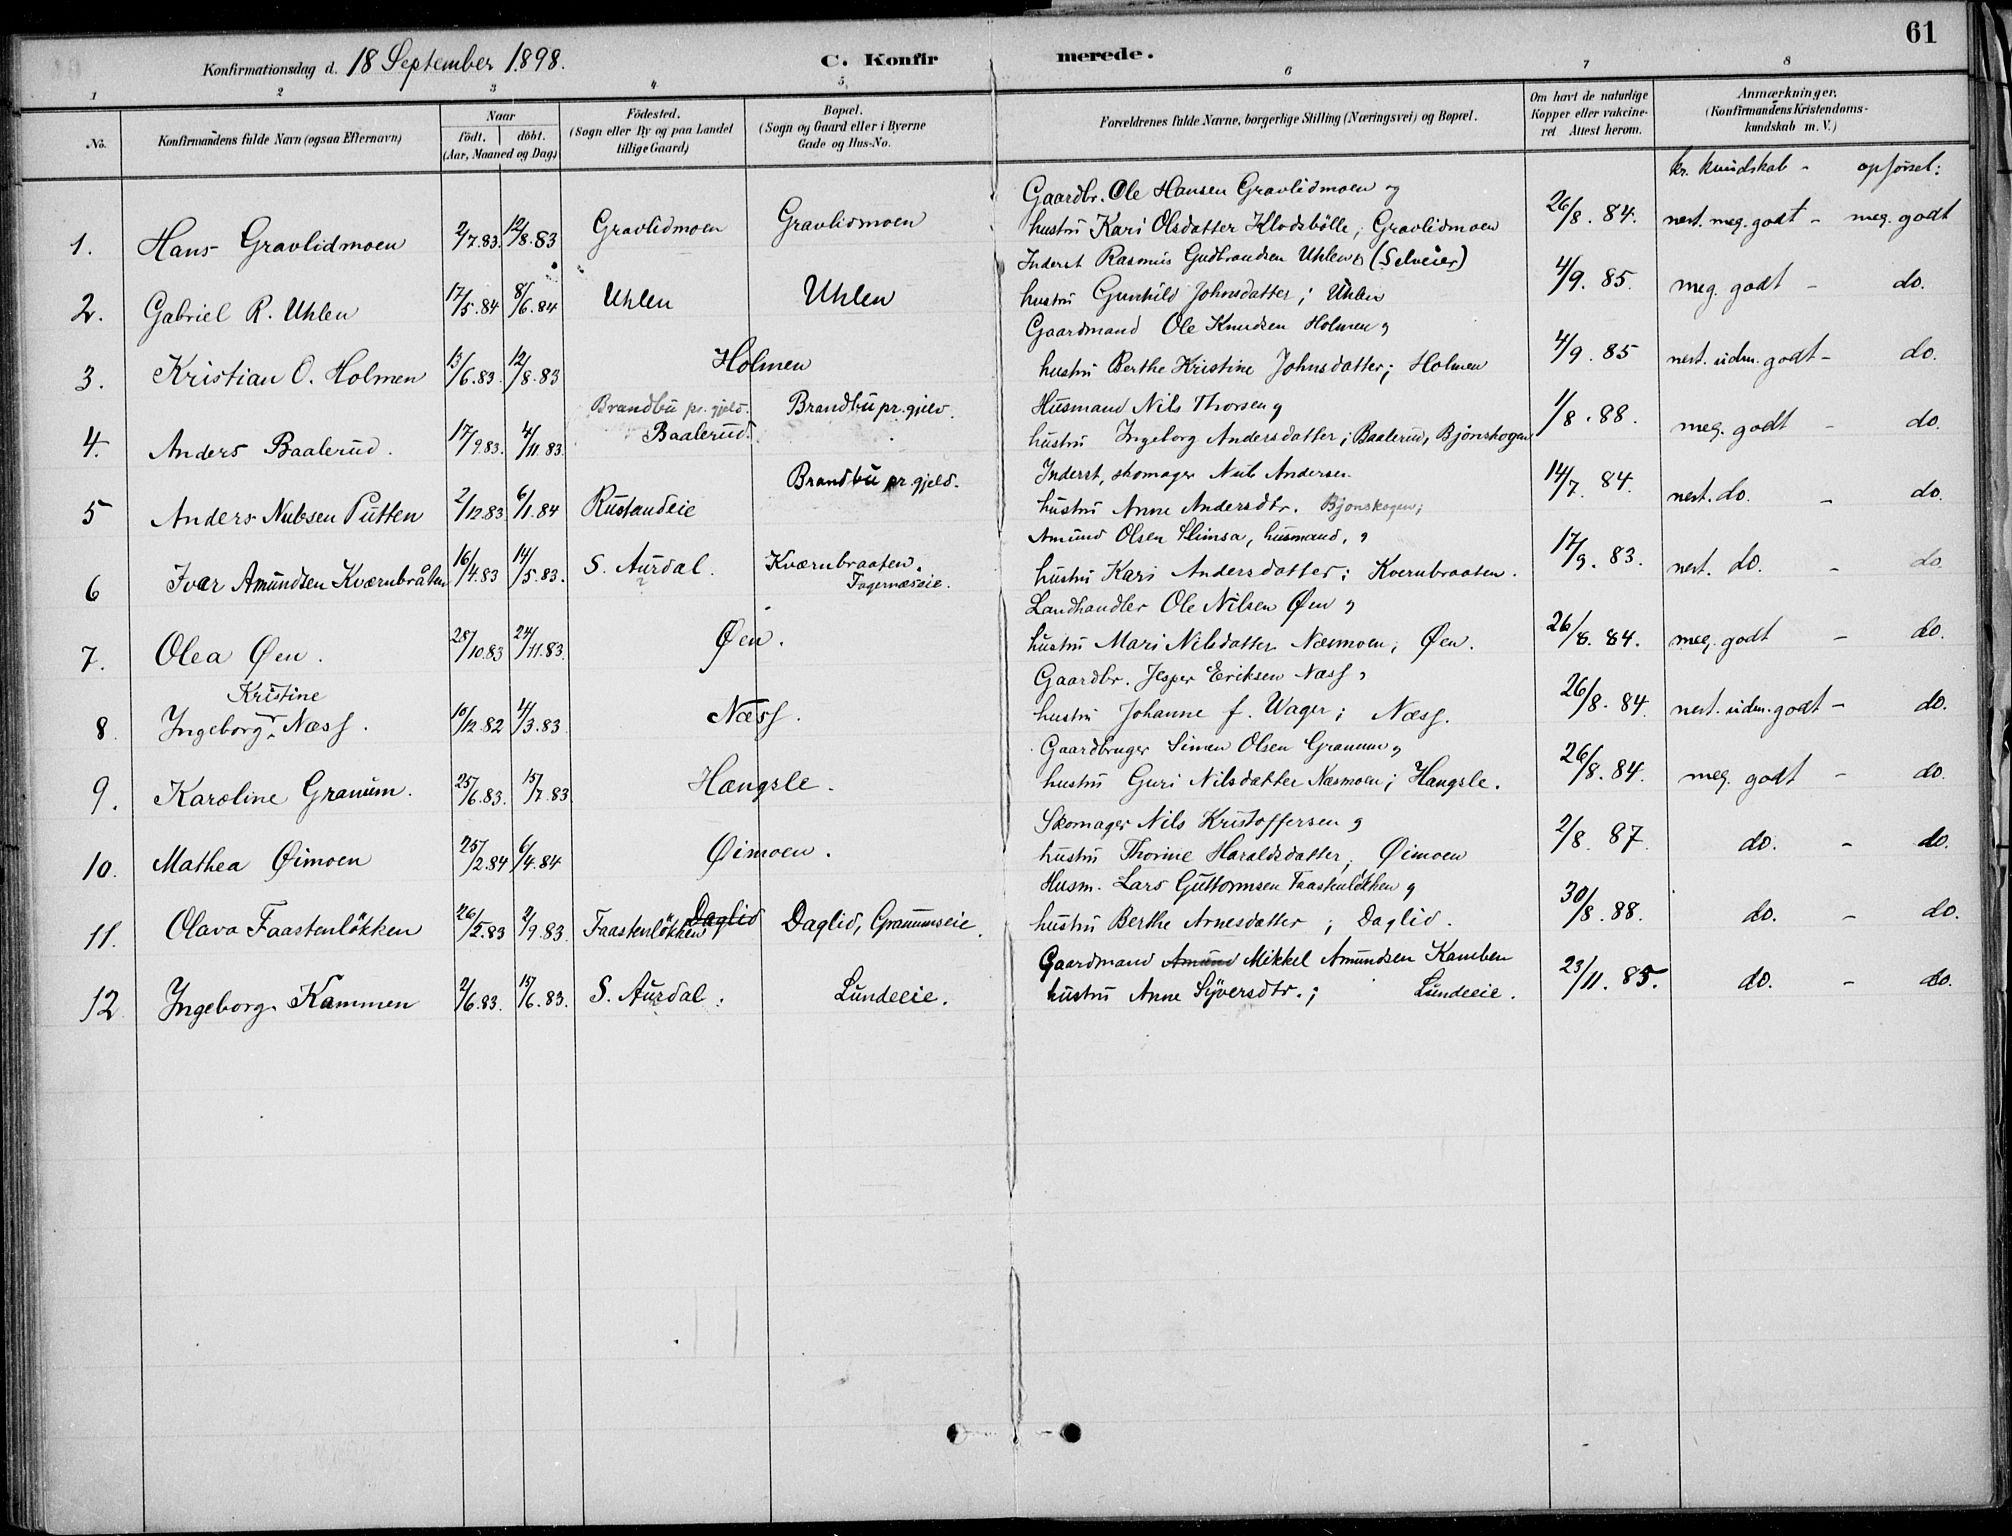 61
Konfirmationsdag d. 18 September 1898.
C. Konfirmerede.
1 2 3 4 5 6 7 8
No.
Konfirmandens fulde Navn (ogsaa Efternavn)
Naar
födt. döbt.
(Aar, Maaned og Dag)
Födested.
(Sogn eller By og paa Landet
tillige Gaard)
Bopæl.
(Sogn og Gaard eller i Byerne
Gade og Hus-No.
Forældrenes fulde Navne, borgerlige Stilling (Næringsvei) og Bopæl.
Om havt de naturlige
Kopper eller vakcine-
ret Attest herom.
Anmærkninger.
(Konfirmandens Kristendoms-
kundskab m. V.)
kr. kundskab - opförsel:
Gaardbr. Ole Hansen Gravlidmoen og
1. Hans Gravlidmoen 2/7.83. 12/8.83 Gravlidmoen Gravlidmoen hustru Kari Olsdatter Klodsbölle; Gravlidmoen 26/8. 84. nest. meg. godt - meg. godt
Inderst Rasmus Gudbrandsen Uhlen (Selveier)
2. Gabriel R. Uhlen 17/5.84 8/6.84 Uhlen Uhlen hustru Gunhild Johnsdatter; Uhlen 4/9. 85. meg. godt - do.
Gaardmand Ole Knudsen Holmen og
3. Kristian O. Holmen 13/6.83. 12/8.83 Holmen hustru Berthe Kristine Johnsdatter; Holmen 4/9. 85 nest. udm. godt - do.
Brandbu pr. gjeld. Brandbu pr. gjeld. Husmand Nils Thorsen og
4. Anders Baalerud. 17/9.83. 4/11.83 Baalerud. hustru Ingeborg Andersdatter; Baalerud, Bjönskogen 1/8. 88. meg. godt - do.
Brandbu pr. gjeld. Inderst, skomager Nub Andersen
5 Anders Nubsen Putten 2/12.83 6/1.84 Rustandeie hustru Anne Andersdtr. Bjonskogen; 14/7. 84. nest. do. - do.
Amund Olsen Slimsa, husmand, og
6 Ivar Amundsen Kværnbråten 16/4.83 14/5.83. S. Aurdal. Kværnbraaten. hustru Kari Andersdatter; Kvernbraaten. 17/9. 83. nest. do. - do.
? Fagernæseie.
Landhandler Ole Nilsen Øen og
7. Olea Øen. 28/10.83 24/11.83. Øen. hustru Mari Nilsdatter Næsmoen; Øen. 26/8. 84. meg. godt - do.
Kristine Gaardbr. Jesper Eriksen Næss og
8. Ingeborg Næss. 16/12.82 4/3.83. Næss. hustru Johanne f. Wager; Næss. 26/8. 84 nest. udm. godt - do.
Gaardbruger Simen Olsen Granum og
9. Karoline Granum. 25/6.83. 15/7.83 Hængsle. hustru Guri Nilsdatter Næsmoen; Hængsle. 26/8. 84. meg. godt - do.
Skomager Nils Kristoffersen og
10. Mathea Øimoen 25/2.84 6/4.84 Øimoen. hustru Thorine Haraldsdatter; Øimoen 2/8. 87. do. - do.
Husm. Lars Guttormsen Faastenlökken og
11. Olava Faastenlökken 26/5.83 2/9.83. Faastenlökken Daglid Daglid, Granumseie. hustru Berthe Arnesdatter; Daglid. 30/8. 88. do. - do.
Gaardmand Amund Mikkel Amundsen Kamben
12 Ingeborg Kammen 2/6.83. 15/6.83. S. Aurdal. Lundeeie. hustru Anne Syversdtr.; Lundeeie. 23/11. 85. do. - do.
?